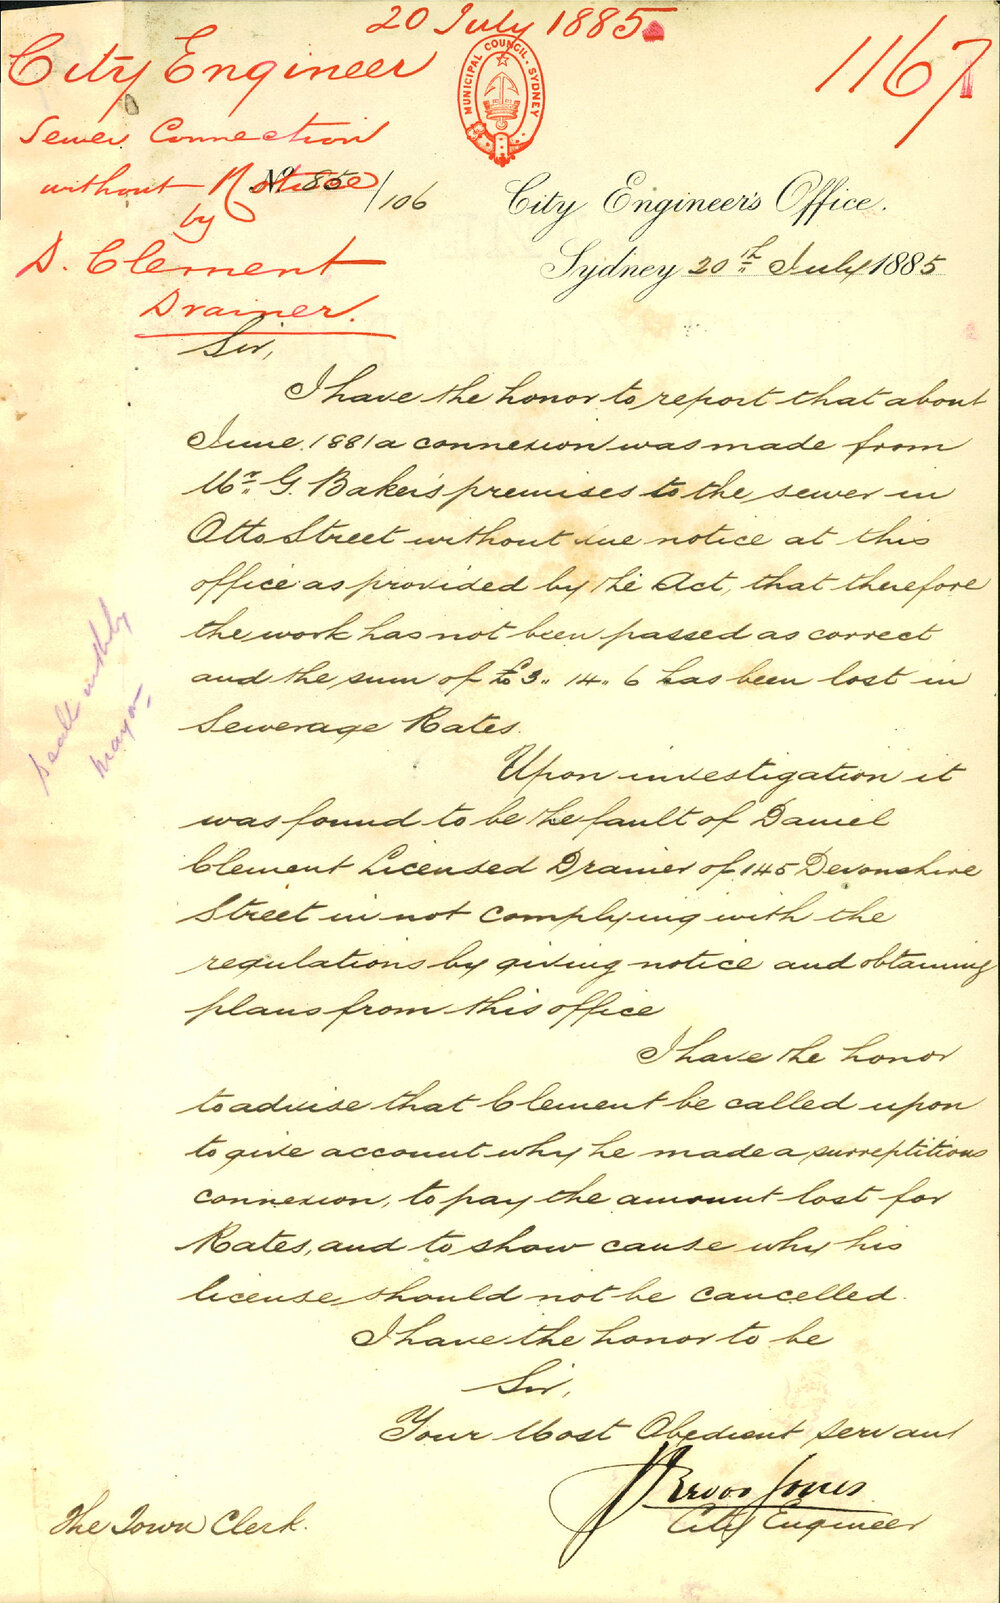 20 July 1885
City Engineer
1167
MUNICIPAL COUNCIL. SYDNEY
Sewer Connection
without Notice
by
D. Clement
Drainer.
No. 85/106
City Engineer's Office.
Sydney 20th July 1885
Sir,
I have the honor to report that about
June 1881 a connexion was made from
Mr. G. Baker's premises to the sewer in
Otto Street without due notice at this
office as provided by the Act, that therefore
the work has not been passed as correct
and the sum of £3.. 14.. 6 has been lost in
Sewerage Rates.
Upon investigation it
was found to be the fault of Daniel
Clement Licensed Drainer of 145 Devonshire
Street in not complying with the
regulations by giving notice and obtaining
plans from this office
I have the honor
to advise that Clement be called upon
to give account why he made a surreptitious
connexion, to pay the amount lost for
Rates, and to show cause why his
license should not be cancelled.
I have the honor to be
Sir,
Your Most Obedient servant
Trevor Jones
City Engineer
The Town Clerk.
dealt with by
mayor